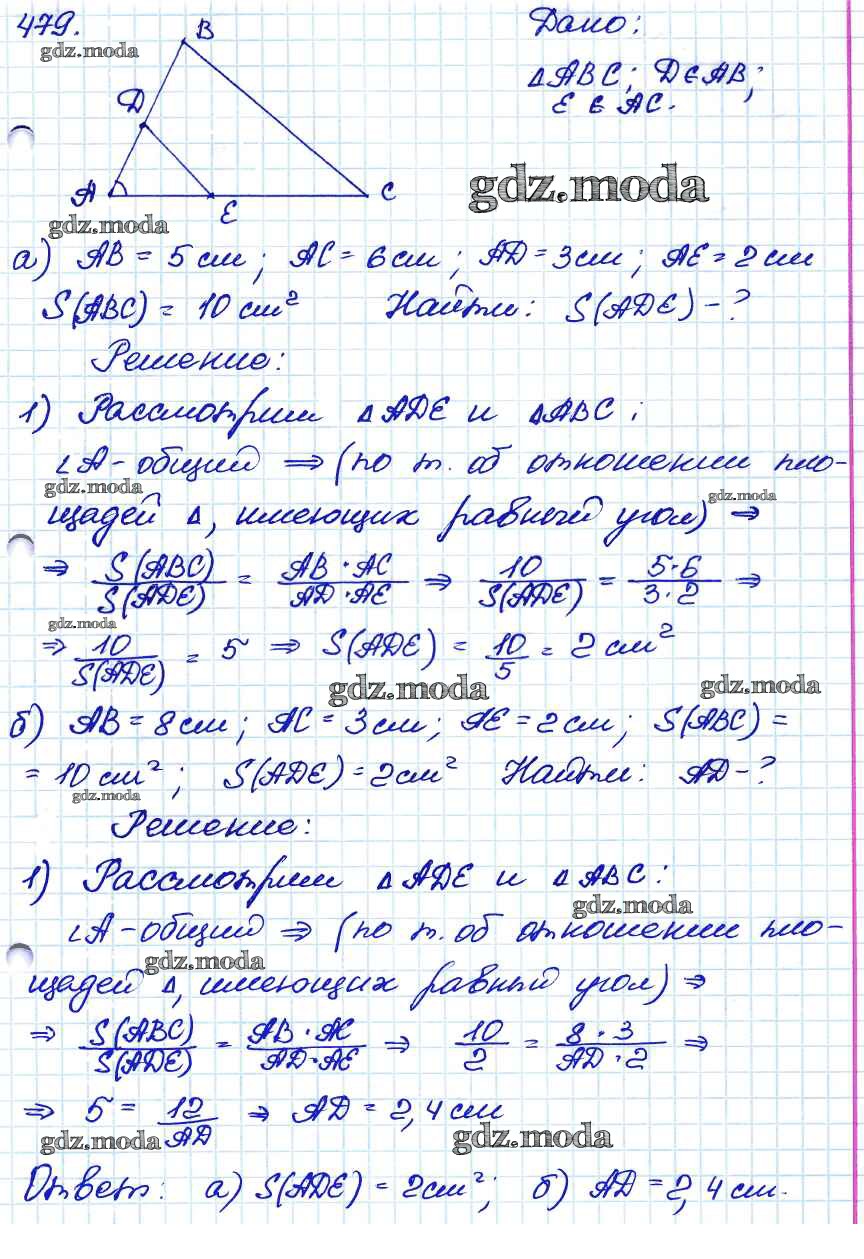 479.
gdz.moda
B
Дано:
△ABC; D∈AB;
E∈AC.
D
A
E
C
gdz.moda
gdz.moda
а) AB = 5 см; AC = 6 см; AD = 3 см; AE = 2 см
S(ABC) = 10 см² Найти: S(ADE) - ?
Решение:
1) Рассмотрим △ADE и △ABC:
∠A - общий ⇒ (по т. об отношении пло-
gdz.moda
gdz.moda
щадей △, имеющих равный угол) ⇒
⇒ S(ABC)/S(ADE) = AB·AC/AD·AE ⇒ 10/S(ADE) = 5·6/3·2 ⇒
gdz.moda
⇒ 10/S(ADE) = 5 ⇒ S(ADE) = 10/5 = 2 см²
gdz.moda
gdz.moda
б) AB = 8 см; AC = 3 см; AE = 2 см; S(ABC) =
= 10 см²; S(ADE) = 2 см² Найти: AD - ?
gdz.moda
Решение:
1) Рассмотрим △ADE и △ABC:
gdz.moda
∠A - общий ⇒ (по т. об отношении пло-
gdz.moda
щадей △, имеющих равный угол) ⇒
⇒ S(ABC)/S(ADE) = AB·AC/AD·AE ⇒ 10/2 = 8·3/AD·2 ⇒
⇒ 5 = 12/AD ⇒ AD = 2,4 см
gdz.moda
gdz.moda
Ответ: а) S(ADE) = 2 см²; б) AD = 2,4 см.